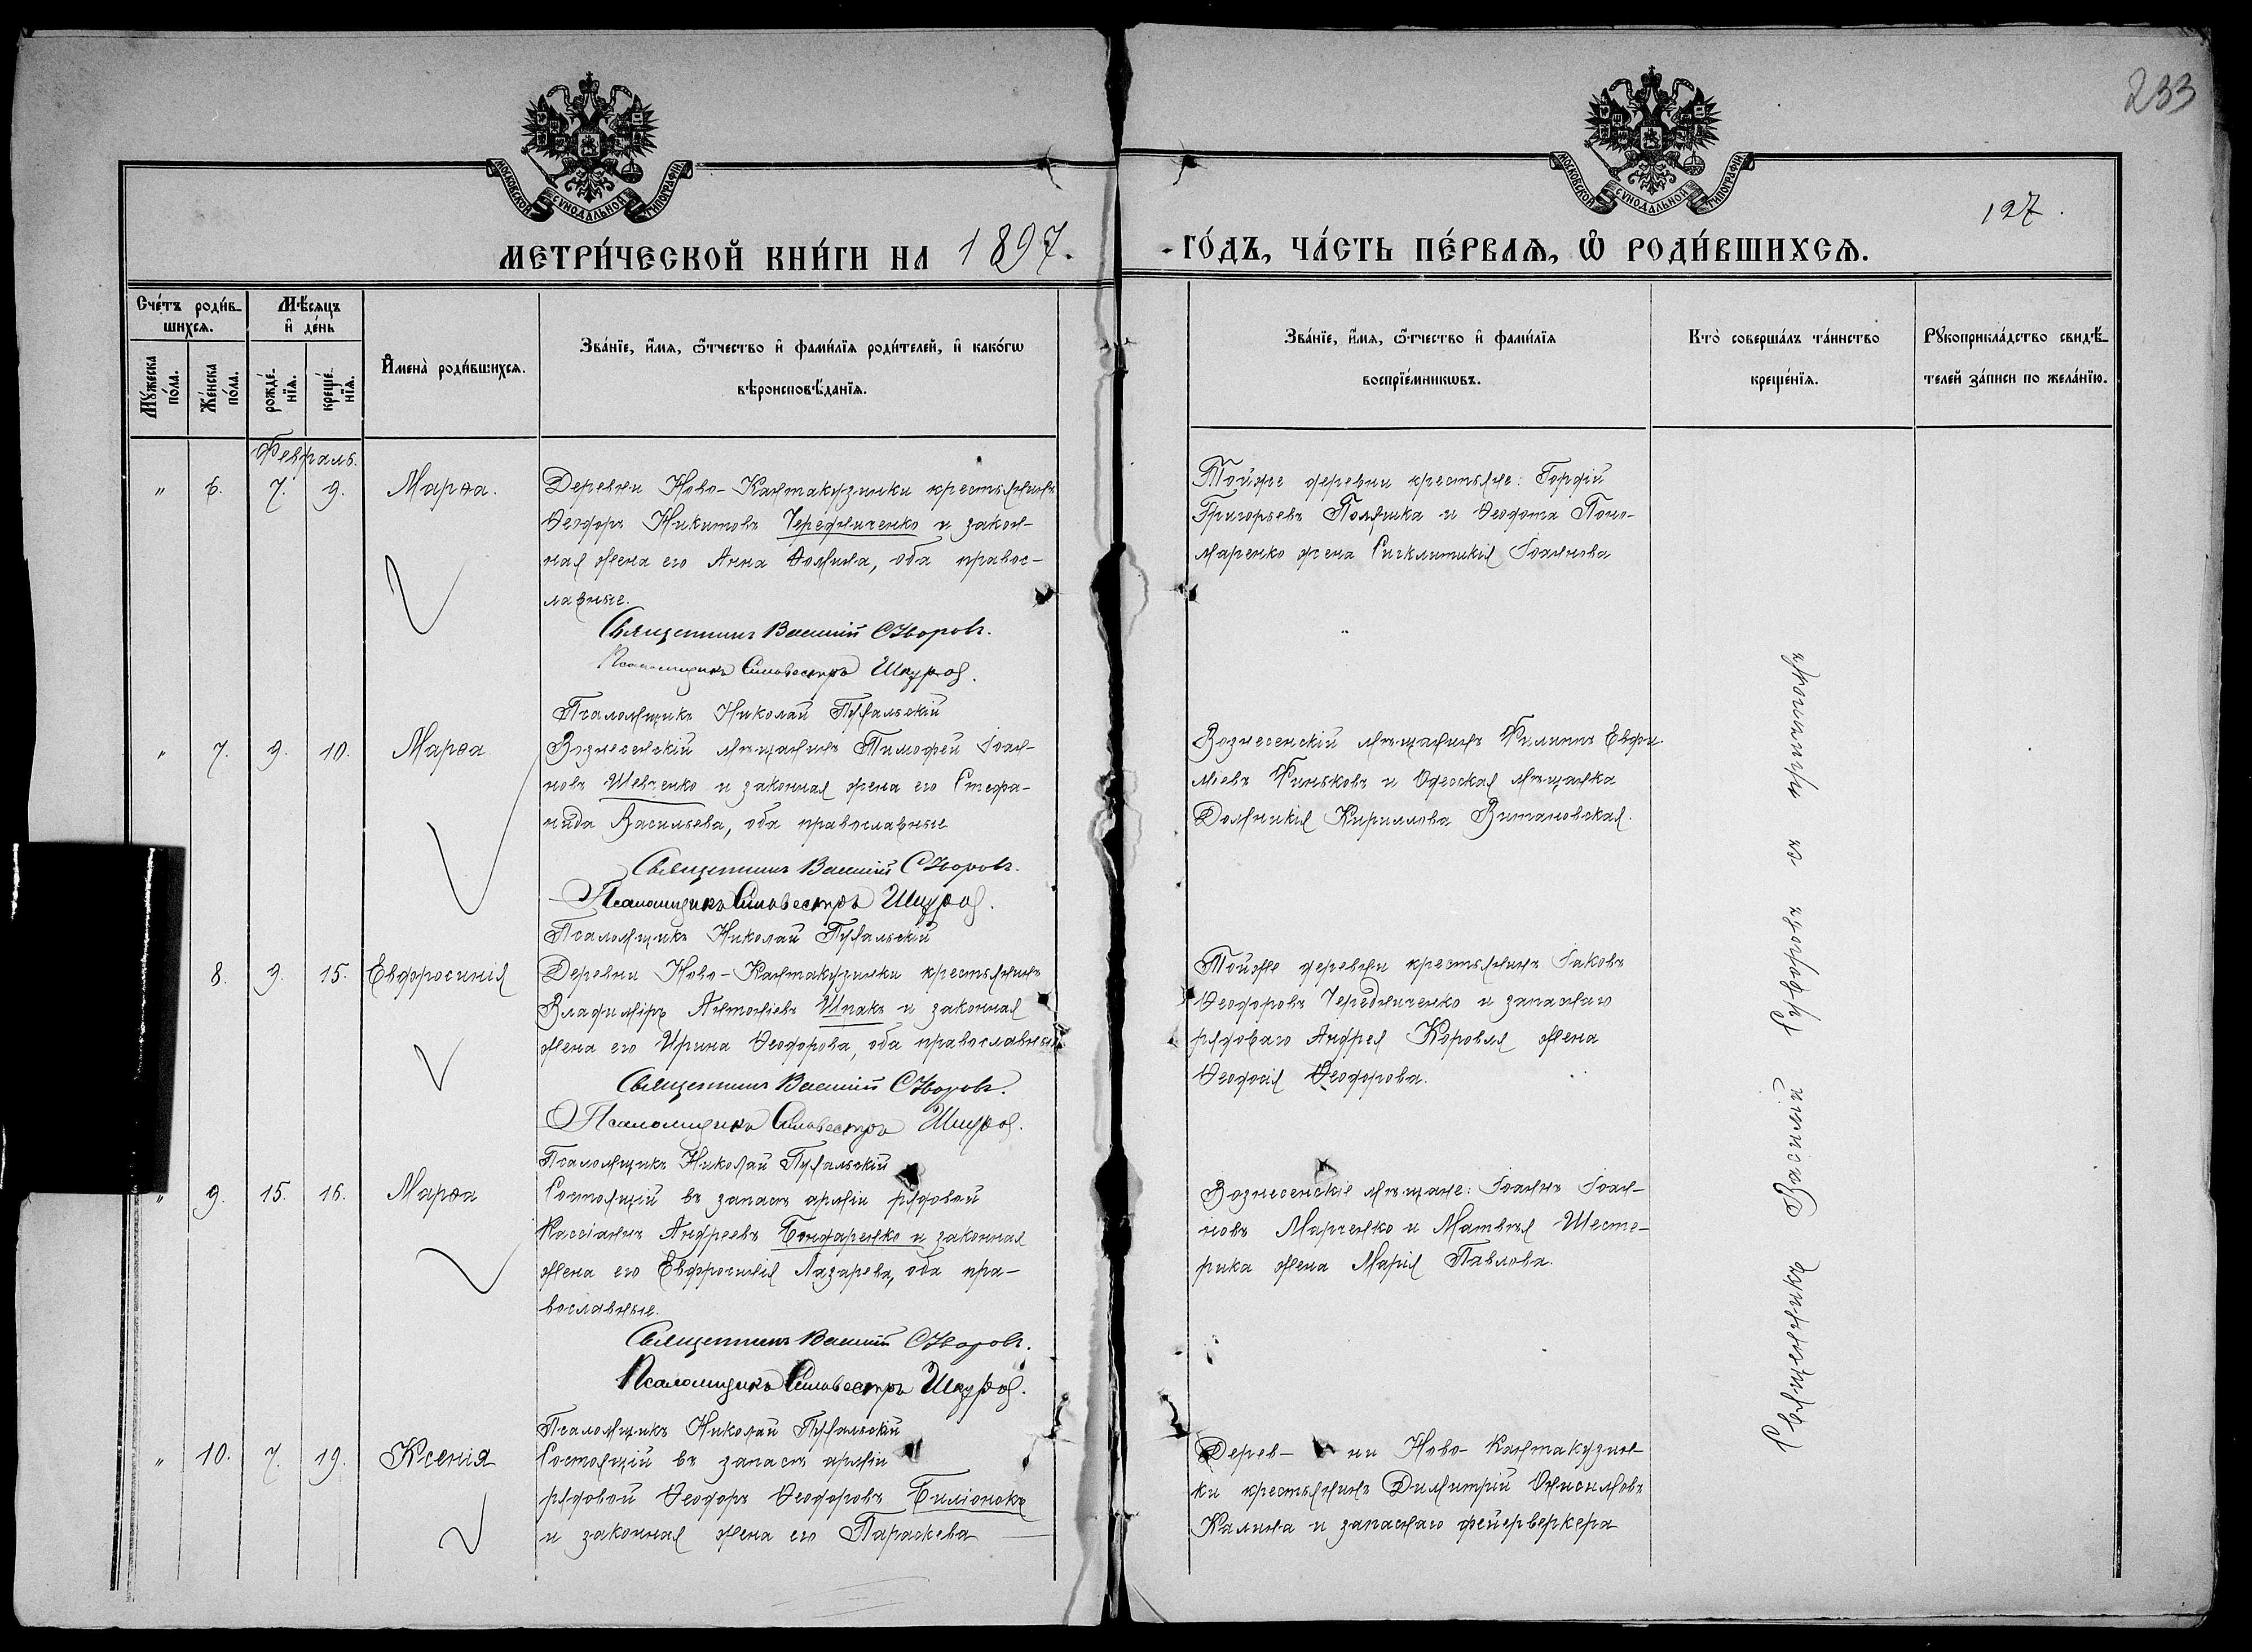 233
МОСКОВСКОЙ СѴНОДАЛЬНОЙ ТИПОГРАФІИ
МОСКОВСКОЙ СѴНОДАЛЬНОЙ ТИПОГРАФІИ
127.
МЕТРИ́ЧЕСКОЙ КНИ́ГИ НА 1897.
ГО́ДЪ, ЧА́СТЬ ПЕ́РВАѦ, Ѽ РОДИ́ВШИХСѦ.
Сче́тъ роди́в-
шихсѧ.
Мꙋ́жеска по́ла.
Же́нска по́ла.
Мѣ́сѧцъ
и҆ де́нь
рожде́-
нїѧ.
креще́-
нїѧ.
И҆мена̀ роди́вшихсѧ.
Зва́нїе, и҆́мѧ, ѻ҆́тчество и҆ фами́лїѧ роди́телей, и҆ како́гѡ
вѣроисповѣ́данїѧ.
Зва́нїе, и҆́мѧ, ѻ҆́тчество и҆ фами́лїѧ
воспрїе́мникѡвъ.
Кто̀ соверша́лъ та́инство
креще́нїѧ.
Рꙋкоприкла́дство свидѣ́-
телей за́писи по жела́нїю.
Февраль.
" 6. 7. 9. Марѳа.
Деревни Ново-Кантакузинки крестьянинъ
Ѳеодоръ Никитовъ Чередниченко и закон-
ная жена его Анна Ѳомина, оба правос-
лавные.
Священникъ Василій
Псаломщикъ Силовестръ
Псаломщикъ Николай
Тойже деревни крестьяне: Гордій
Григорьевъ и Ѳеодота Поно-
маренко жена Сигклитикія Іоаннова
" 7. 9. 10. Марѳа
Вознесенскій мѣщанинъ Тимофей Іоан-
новъ Шевченко и законная жена его Стефа-
нида Васильева, оба православные
Священникъ Василій
Псаломщикъ Силовестръ
Псаломщикъ Николай
Вознесенскій мѣщанинъ Филиппъ Евфи-
міевъ Финьковъ и Одесская мѣщанка
Домникія Кириллова Витановская.
8. 9. 15. Евфросинія
Деревни Ново-Кантакузинки крестьянинъ
Владиміръ Антоніевъ Шпакъ и законная
жена его Ирина Ѳеодорова, оба православные
Священникъ Василій
Псаломщикъ Силовестръ
Псаломщикъ Николай
Тойже деревни крестьянинъ Іаковъ
Ѳеодоровъ Чередниченко и запаснаго
рядоваго Андрея Коровая жена
Ѳеодосія Ѳеодорова.
" 9. 15. 16. Марѳа
Состоящій въ запасѣ арміи рядовой
Кассіанъ Андреевъ Бондаренко и законная
жена его Евфросинія Лазарева, оба пра-
вославные.
Священникъ Василій
Псаломщикъ Силовестръ
Псаломщикъ Николай
Вознесенскіе мѣщане: Іоаннъ Іоан-
новъ Марченко и Матвѣя Шесте-
рика жена Марія Павлова.
" 10. 7. 19. Ксенія
Состоящій въ запасѣ арміи
рядовой Ѳеодоръ Ѳеодоровъ Биліонокъ
и законная жена его Параскева
Дерев- ни Ново-Кантакузин-
ки крестьянинъ Димитрій Онисимовъ
Калина и запаснаго фейерверкера
Священникъ Василій съ